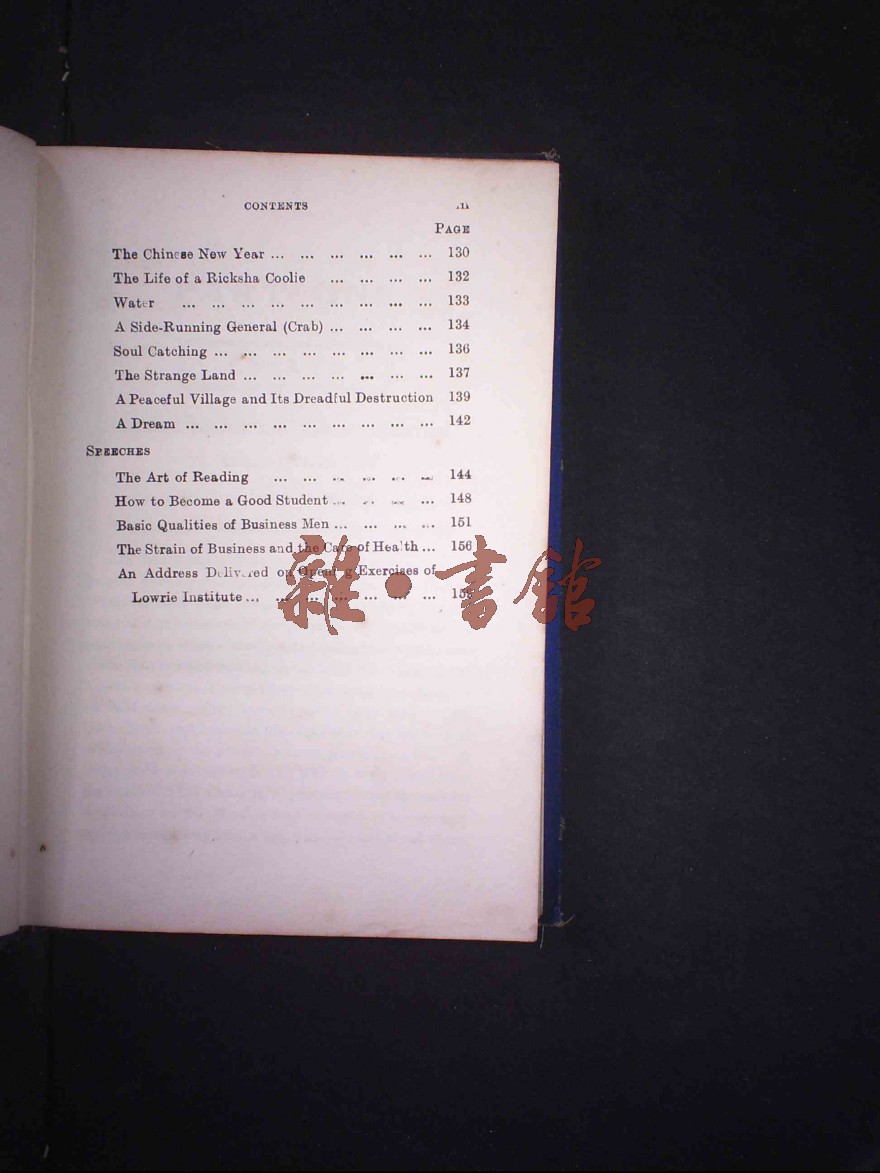 CONTENTS
PAGE
The Chinese New Year ... ... ... ... ... ... 130
The Life of a Ricksha Coolie ... ... ... ... 132
Water ... ... ... ... ... ... ... ... ... 133
A Side-Running General (Crab) ... ... ... ... 134
Soul Catching ... ... ... ... ... ... ... ... 136
The Strange Land ... ... ... ... ... ... ... 137
A Peaceful Village and Its Dreadful Destruction 139
A Dream ... ... ... ... ... ... ... ... ... 142
SPEECHES
The Art of Reading ... ... ... ... ... ... 144
How to Become a Good Student ... ... ... ... 148
Basic Qualities of Business Men ... ... ... ... 151
The Strain of Business and the Care of Health ... 156
An Address Delivered on Opening Exercises of
Lowrie Institute ... ... ... ... ... ... ...
雜·書館